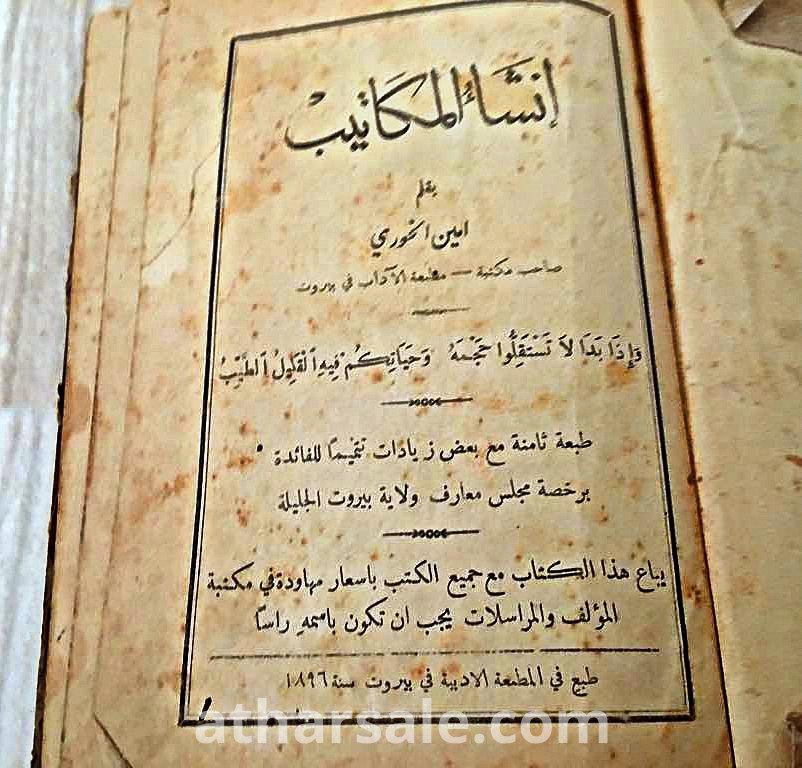 إنشَاءُ المكَاتيب
بقلم
امين الخوري
صاحب مكتبة — مطبعة الآداب في بيروت
وَإِذَا بَدَا لاَ تَسْتَقِلُّوا حَجْمَهُ وَحَيَاتِكُمْ فِيهِ اَلْقَلِيلُ اَلطَّيِّبُ
طبعة ثامنة مع بعض زيادات تتميمًا للفائدة
برخصة مجلس معارف ولاية بيروت الجليلة
يباع هذا الكتاب مع جميع الكتب باسعار مهاودة في مكتبة
المؤلف والمراسلات يجب ان تكون باسمهِ راسًا
طبع في المطبعة الادبية في بيروت سنة ١٨٩٦
atharsale.com